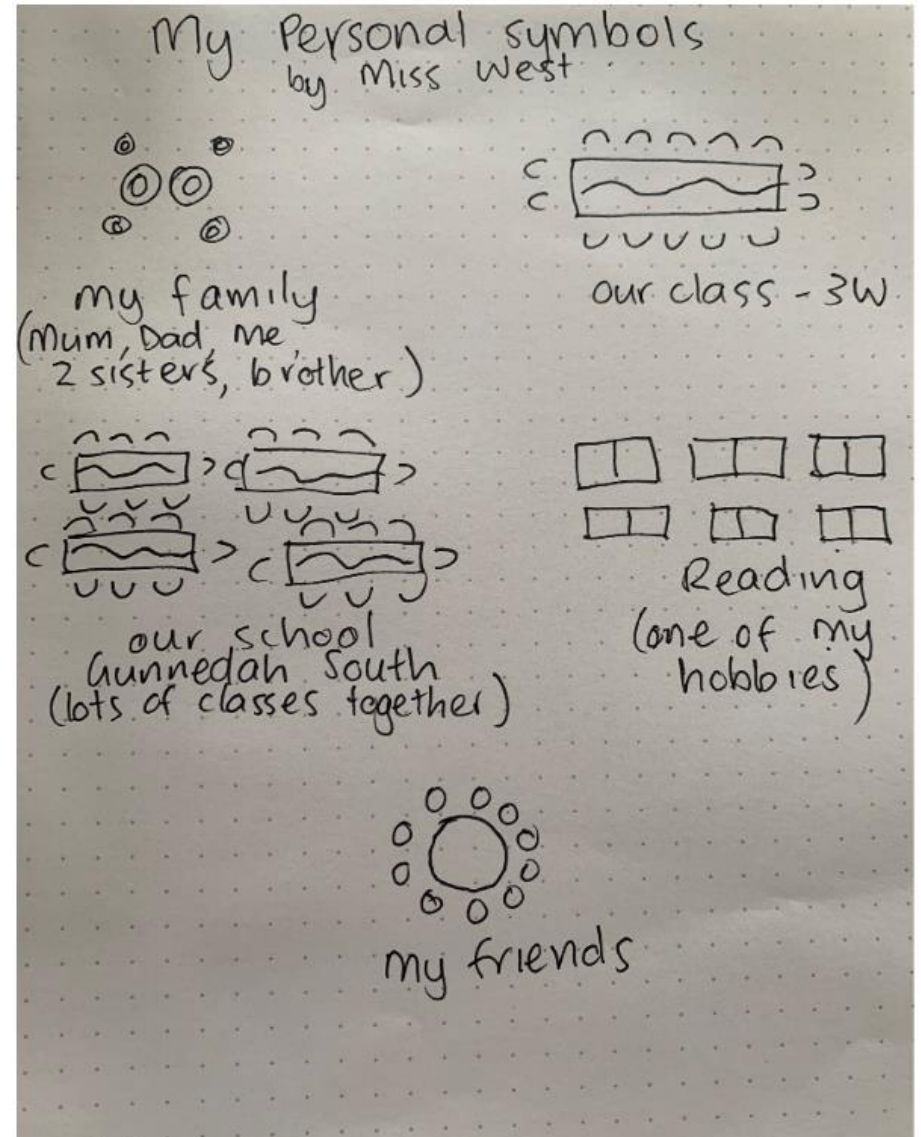 My Personal symbols
by Miss West
my family
(Mum, Dad, me,
2 sisters, brother)
our class - 3W
our school
Gunnedah South
(lots of classes together)
Reading
(one of my
hobbies)
my friends